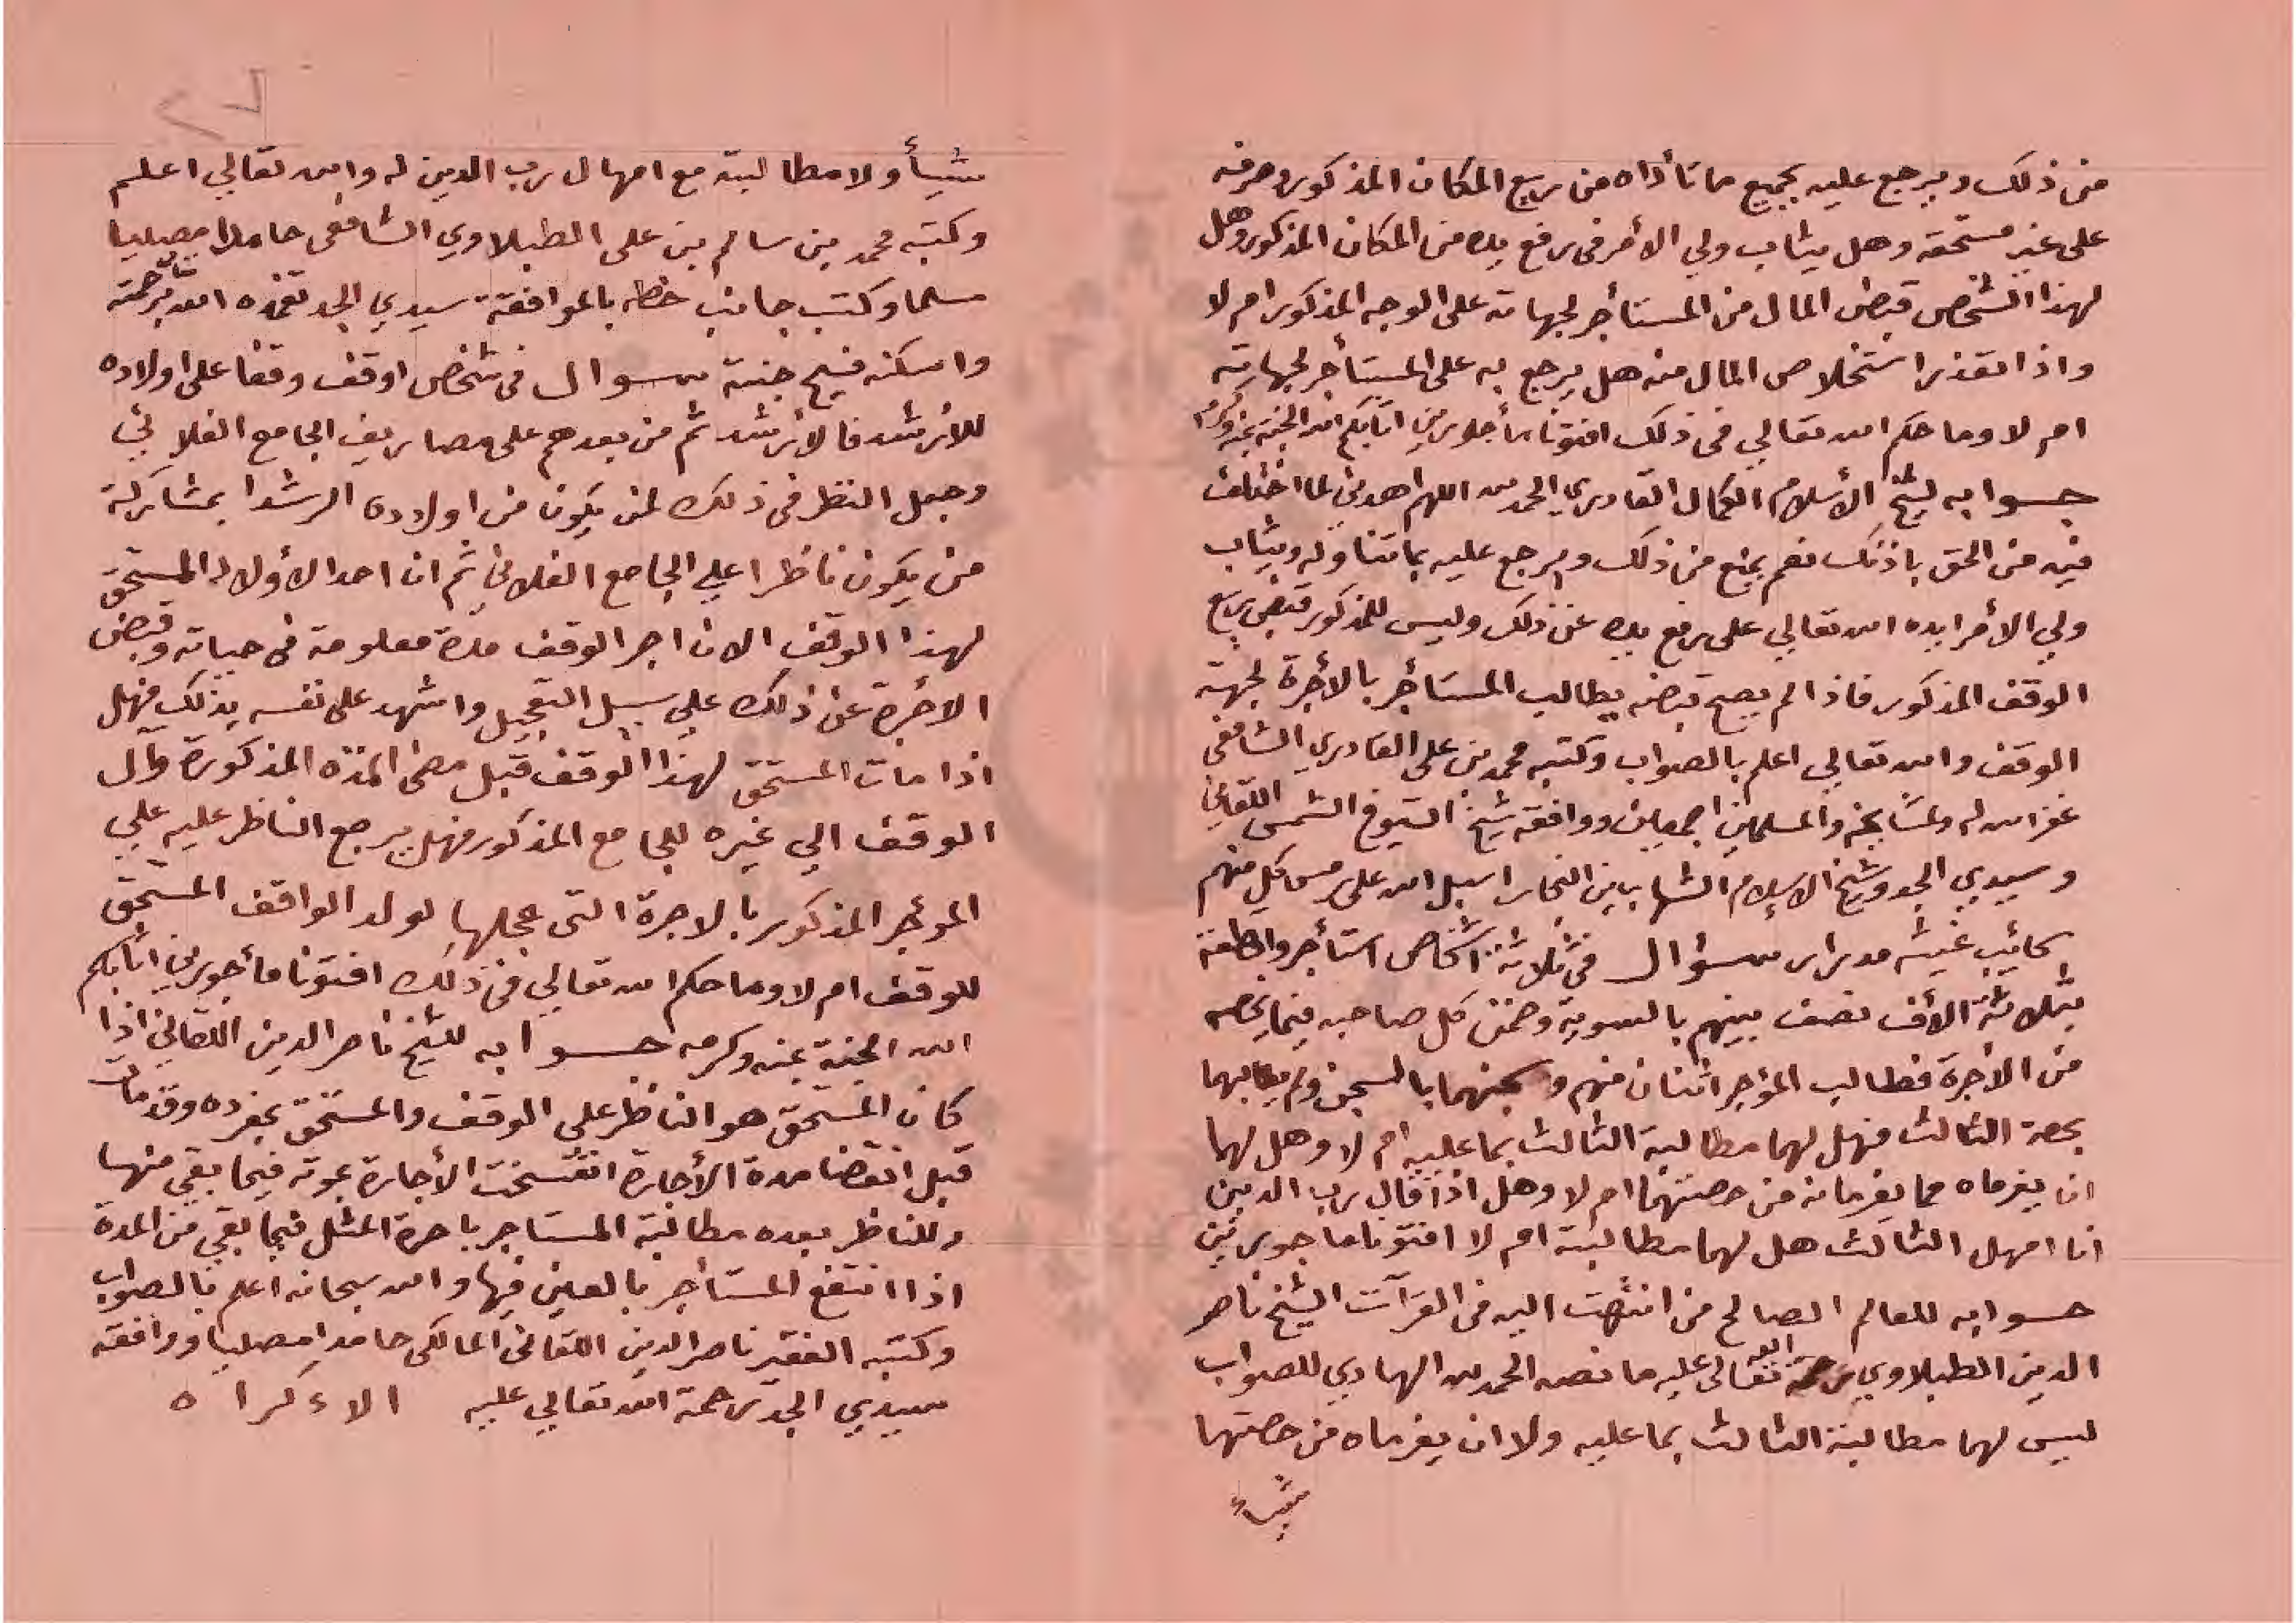 من ذلك ويرجع عليه بجميع ما تأداه من ريع المكان المذكور وصرفه
على غير مستحقه وهل يثاب ولي الأمر في رفع يده من المكان المذكور وهل
لهذا الشخص قبض المال من المستأجر لجهاته على الوجه المذكور ام لا
واذا تعذر استخلاص المال منه هل يرجع به على المستأجر لجهاته
ام لا وما حكم الله تعالي في ذلك افتونا مأجورين اثابكم الله الجنة بمنه وكرمه
جوابه لشيخ الأسلام الكمال القادري الحمد لله اللهم اهدني لما اختلف
فيه من الحق باذنك نعم يمنع من ذلك ويرجع عليه بما تناوله ويثاب
ولي الأمر ايده الله تعالي على رفع يده عن ذلك وليس للمذكور قبض ريع
الوقف المذكور فاذا لم يصح قبضه يطالب المستأجر بالأجرة لجهة
الوقف والله تعالي اعلم بالصواب وكتبه محمد بن على القادري الشافعى
غفر الله له ولمشايخه والمسلمين اجمعين ووافقه شيخ الشيوخ الشمس اللقاني
وسيدي الجد وشيخ الاسلام الشهاب بن النجار اسبل الله على رمس كل منهم
سحائب غيثه مدرار سؤال في ثلاثة اشخاص استأجروا قطعة
بثلاثة الأف نصف بينهم بالسوية وضمن كل صاحبه فيما يخصه
من الأجرة فطالب المؤجر اثنان منهم وسجنهما بالسجن ولم يطالبهما
بحصة الثالث فهل لهما مطالبة الثالث بما عليه ام لا وهل لهما
ان يغرماه مما يغرمانه من حصتهما ام لا وهل اذا قال رب الدين
انا امهل الثالث هل لهما مطالبته ام لا افتونا ماجورين
جوابه للعالم الصالح من انتهت اليه في القرآت الشيخ ناصر
الدين الطبلاوي رحمة الله تعالى عليه ما نصه الحمد لله الهادي للصواب
ليس لهما مطالبة الثالث بما عليه ولا ان يغرماه من حصتهما
شيأ
٢٧
شيأ ولا مطالبته مع امهال رب الدين له والله تعالي اعلم
وكتبه محمد بن سالم بن على الطبلاوي الشافعى حامدا مصليا
مسلما وكتب جانب خطه بالموافقة سيدي الجد تغمده الله تعالى برحمته
واسكنه فسيح جنته سوال فى شخص اوقف وقفا على اولاده
للأرشد فالأرشد ثم من بعدهم على مصاريف الجامع الفلاني
وجعل النظر فى ذلك لمن يكون من اولاده الرشدا بمشاركة
من يكون ناظرا علي الجامع الفلاني ثم ان احد الأولاد المستحق
لهذا الوقف الان اجر الوقف مدة معلومة فى حياته وقبض
الاجرة عن ذلك علي سبيل التعجيل واشهد على نفسه بذلك فهل
اذا مات المستحق لهذا الوقف قبل مضى المدة المذكورة وآل
الوقف الي غيره للجامع المذكور فهل يرجع الناظر عليه علي
المؤجر المذكور بالاجرة التى عجلها لولد الواقف المستحق
للوقف ام لا وما حكم الله تعالي فى ذلك افتونا مأجورين اثابكم
الله الجنة بمنه وكرمه جوابه للشيخ ناصر الدين اللقاني اذا
كان المستحق هو الناظر على الوقف والمستحق بمفرده وقد مات
قبل انقضا مدة الأجارة انفسخت الأجارة بموته فيما بقي منها
وللناظر بعده مطالبة المستاجر باجرة المثل فيما بقي من المدة
اذا انتفع المستأجر بالعين فيها والله سبحانه اعلم بالصواب
وكتبه الفقير ناصر الدين اللقانى المالكى حامدا مصليا ووافقه
سيدي الجد رحمة الله تعالي عليه الاءكرا ه